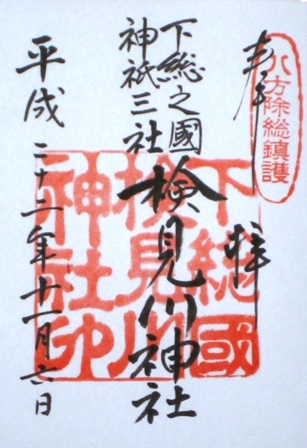 八方除総鎮護
奉拝
下総之國
神祇三社
検見川神社
下総國
検見川
神社印
平成二十二年十一月六日